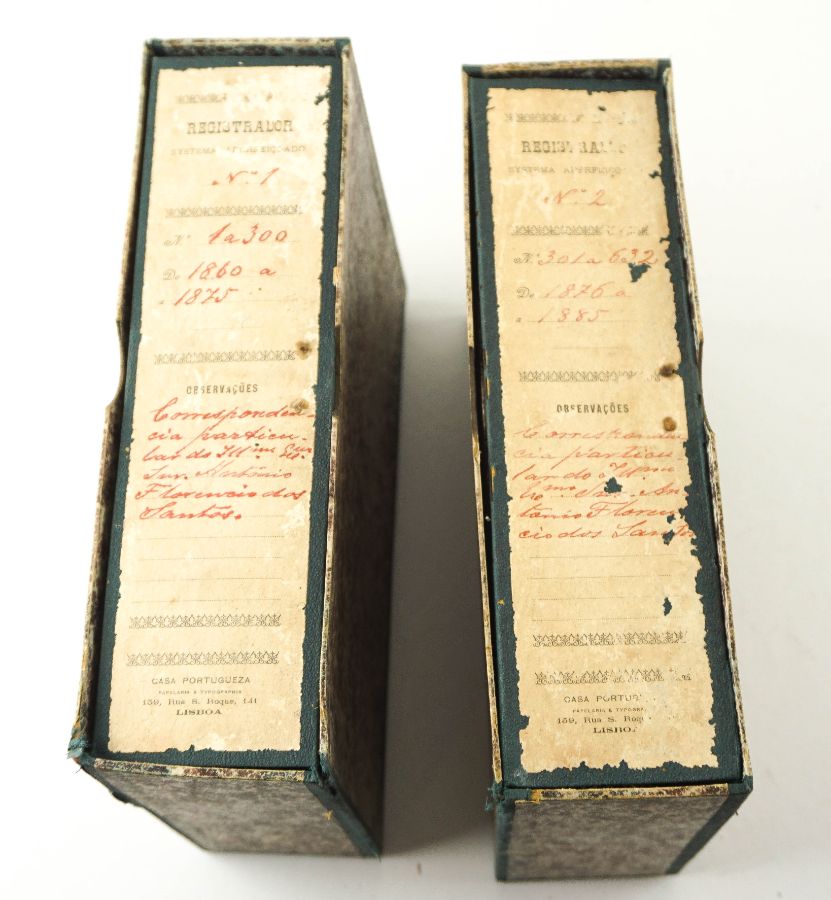 REGISTRADOR
SYSTEMA APERFEIÇOADO
Nº 1
Nº 1 a 300
De 1860 a
a 1875
OBSERVAÇÕES
Corresponden-
cia particu-
lar do Illmo
Snr. António
Florencio dos
Santos.
CASA PORTUGUEZA
PAPELARIA & TYPOGRAPHIA
139, Rua S. Roque, 141
LISBOA
REGISTRADO
SYSTEMA APERFEIÇO
Nº 2
Nº 301 a 632
De 1876 a
a 1885
OBSERVAÇÕES
Corresponden
cia particu
lar do Illmo
Exmo Snr. An
tonio Floren
cio dos Santos
CASA PORTUG
PAPELARIA & TYPOGRA
139, Rua S. Roqu
LISBO